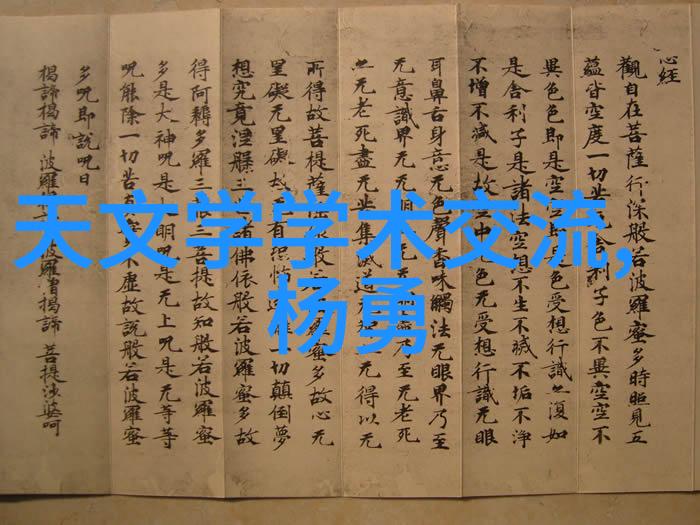 天文学学术交流,
杨勇
心经
觀自在菩薩行深般若波羅蜜多時照見五
蘊皆空度一切苦厄舍利子色不異空空不
異色色即是空空即是色受想行識亦復如
是舍利子是諸法空想不生不滅不垢不淨
不增不減是故空中无色无受想行識无眼
耳鼻舌身意无色聲香味觸法无眼界乃至
无意識界无无明亦无无明盡乃至无老死
亦无老死盡无苦集滅道无智亦无得以无
所得故菩提薩埵依般若波羅蜜多故心无
罣礙无罣礙故无有恐怖遠離一切顛倒夢
想究竟涅槃三世諸佛依般若波羅蜜多故
得阿耨多羅三藐三菩提故知般若波羅蜜
多是大神呪是大明呪是无上呪是无等等
呪能除一切苦真實不虛故說般若波羅蜜
多呪即說呪曰
揭諦揭諦 波羅揭諦 波羅僧揭諦 菩提沙婆呵